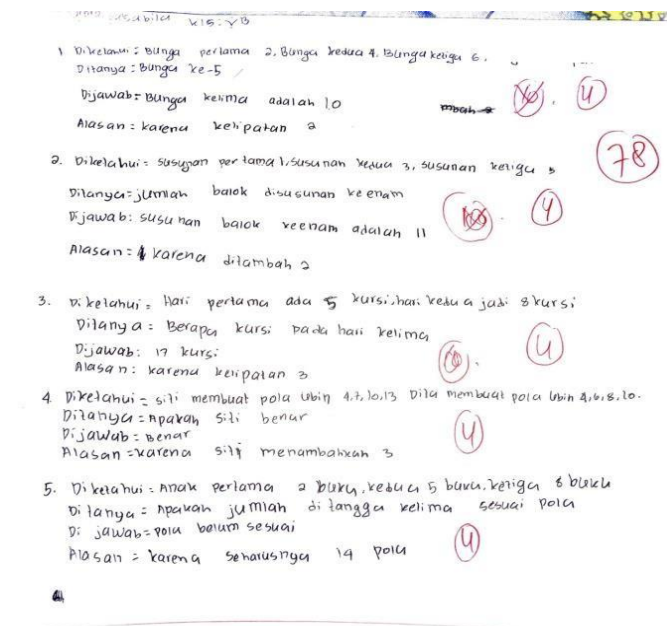 Kls: VB
1 Diketahui : Bunga pertama 2, Bunga kedua 4. Bunga ketiga 6.
Ditanya : Bunga ke-5
Dijawab = Bunga kelima adalah 10
4
Alasan = karena kelipatan 2
78
2. Diketahui = susunan pertama 1, susunan kedua 3, susunan ketiga 5
Ditanya = jumlah balok disusunan keenam
4
Dijawab : susunan balok keenam adalah 11
Alasan = karena ditambah 2
3. Diketahui = Hari pertama ada 5 kursi, hari kedua jadi 8 kursi
Ditanya : Berapa kursi pada hari kelima
4
Dijawab : 17 kursi
Alasan : karena kelipatan 3
4. Diketahui = siti membuat pola ubin 4,7,10,13 Dila membuat pola ubin 4,6,8,10.
Ditanya = Apakah siti benar
4
Dijawab = Benar
Alasan = karena siti menambahkan 3
5. Diketahui = Anak pertama 2 buku, kedua 5 buku, ketiga 8 buku
Ditanya = Apakah jumlah ditangga kelima sesuai pola
Dijawab = pola belum sesuai
4
Alasan = karena seharusnya 14 pola